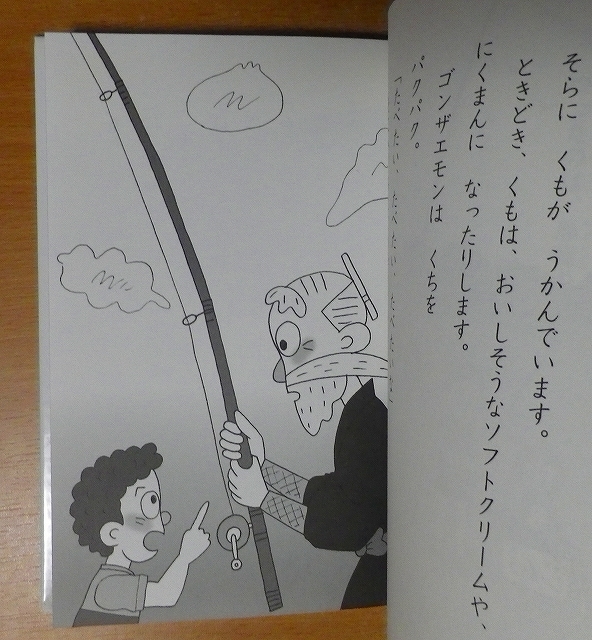 そらに　くもが　うかんでいます。
ときどき、くもは、おいしそうなソフトクリームや、
にくまんに　なったりします。
ゴンザエモンは　くちを
パクパク。
「たべたい、たべたい、